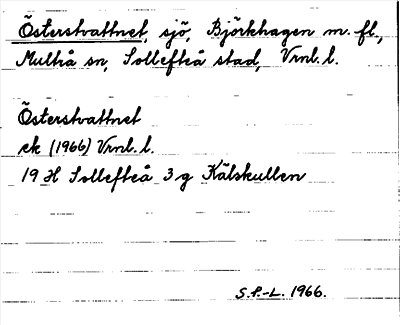 Österstvattnet, sjö, Björkhagen m. fl.,
Multrå sn, Sollefteå stad, Vrnl. l.
Österstvattnet
ek (1966) Vrnl. l.
19 H Sollefteå 3 g Kälskullen
S.P.-L. 1966.